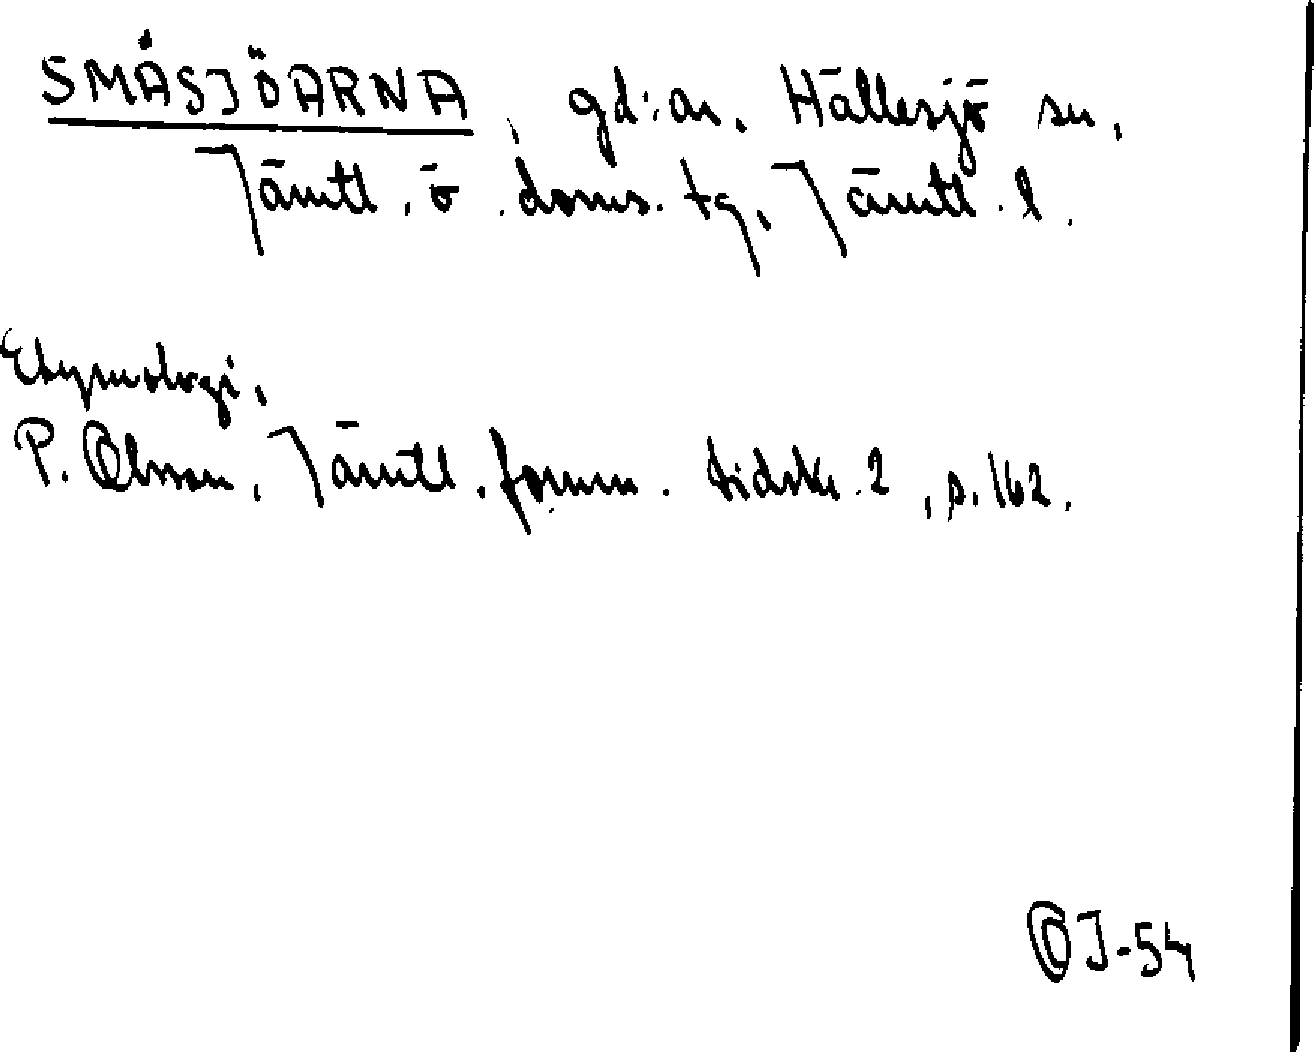 SMÅSJÖARNA, gd:ar. Hällesjö sn,
Jämtl. ö. doms. tg, Jämtl. l.
Etymologi.
P. Olsson, Jämtl. fornm. tidskr. 2, s. 162.
OJ-54